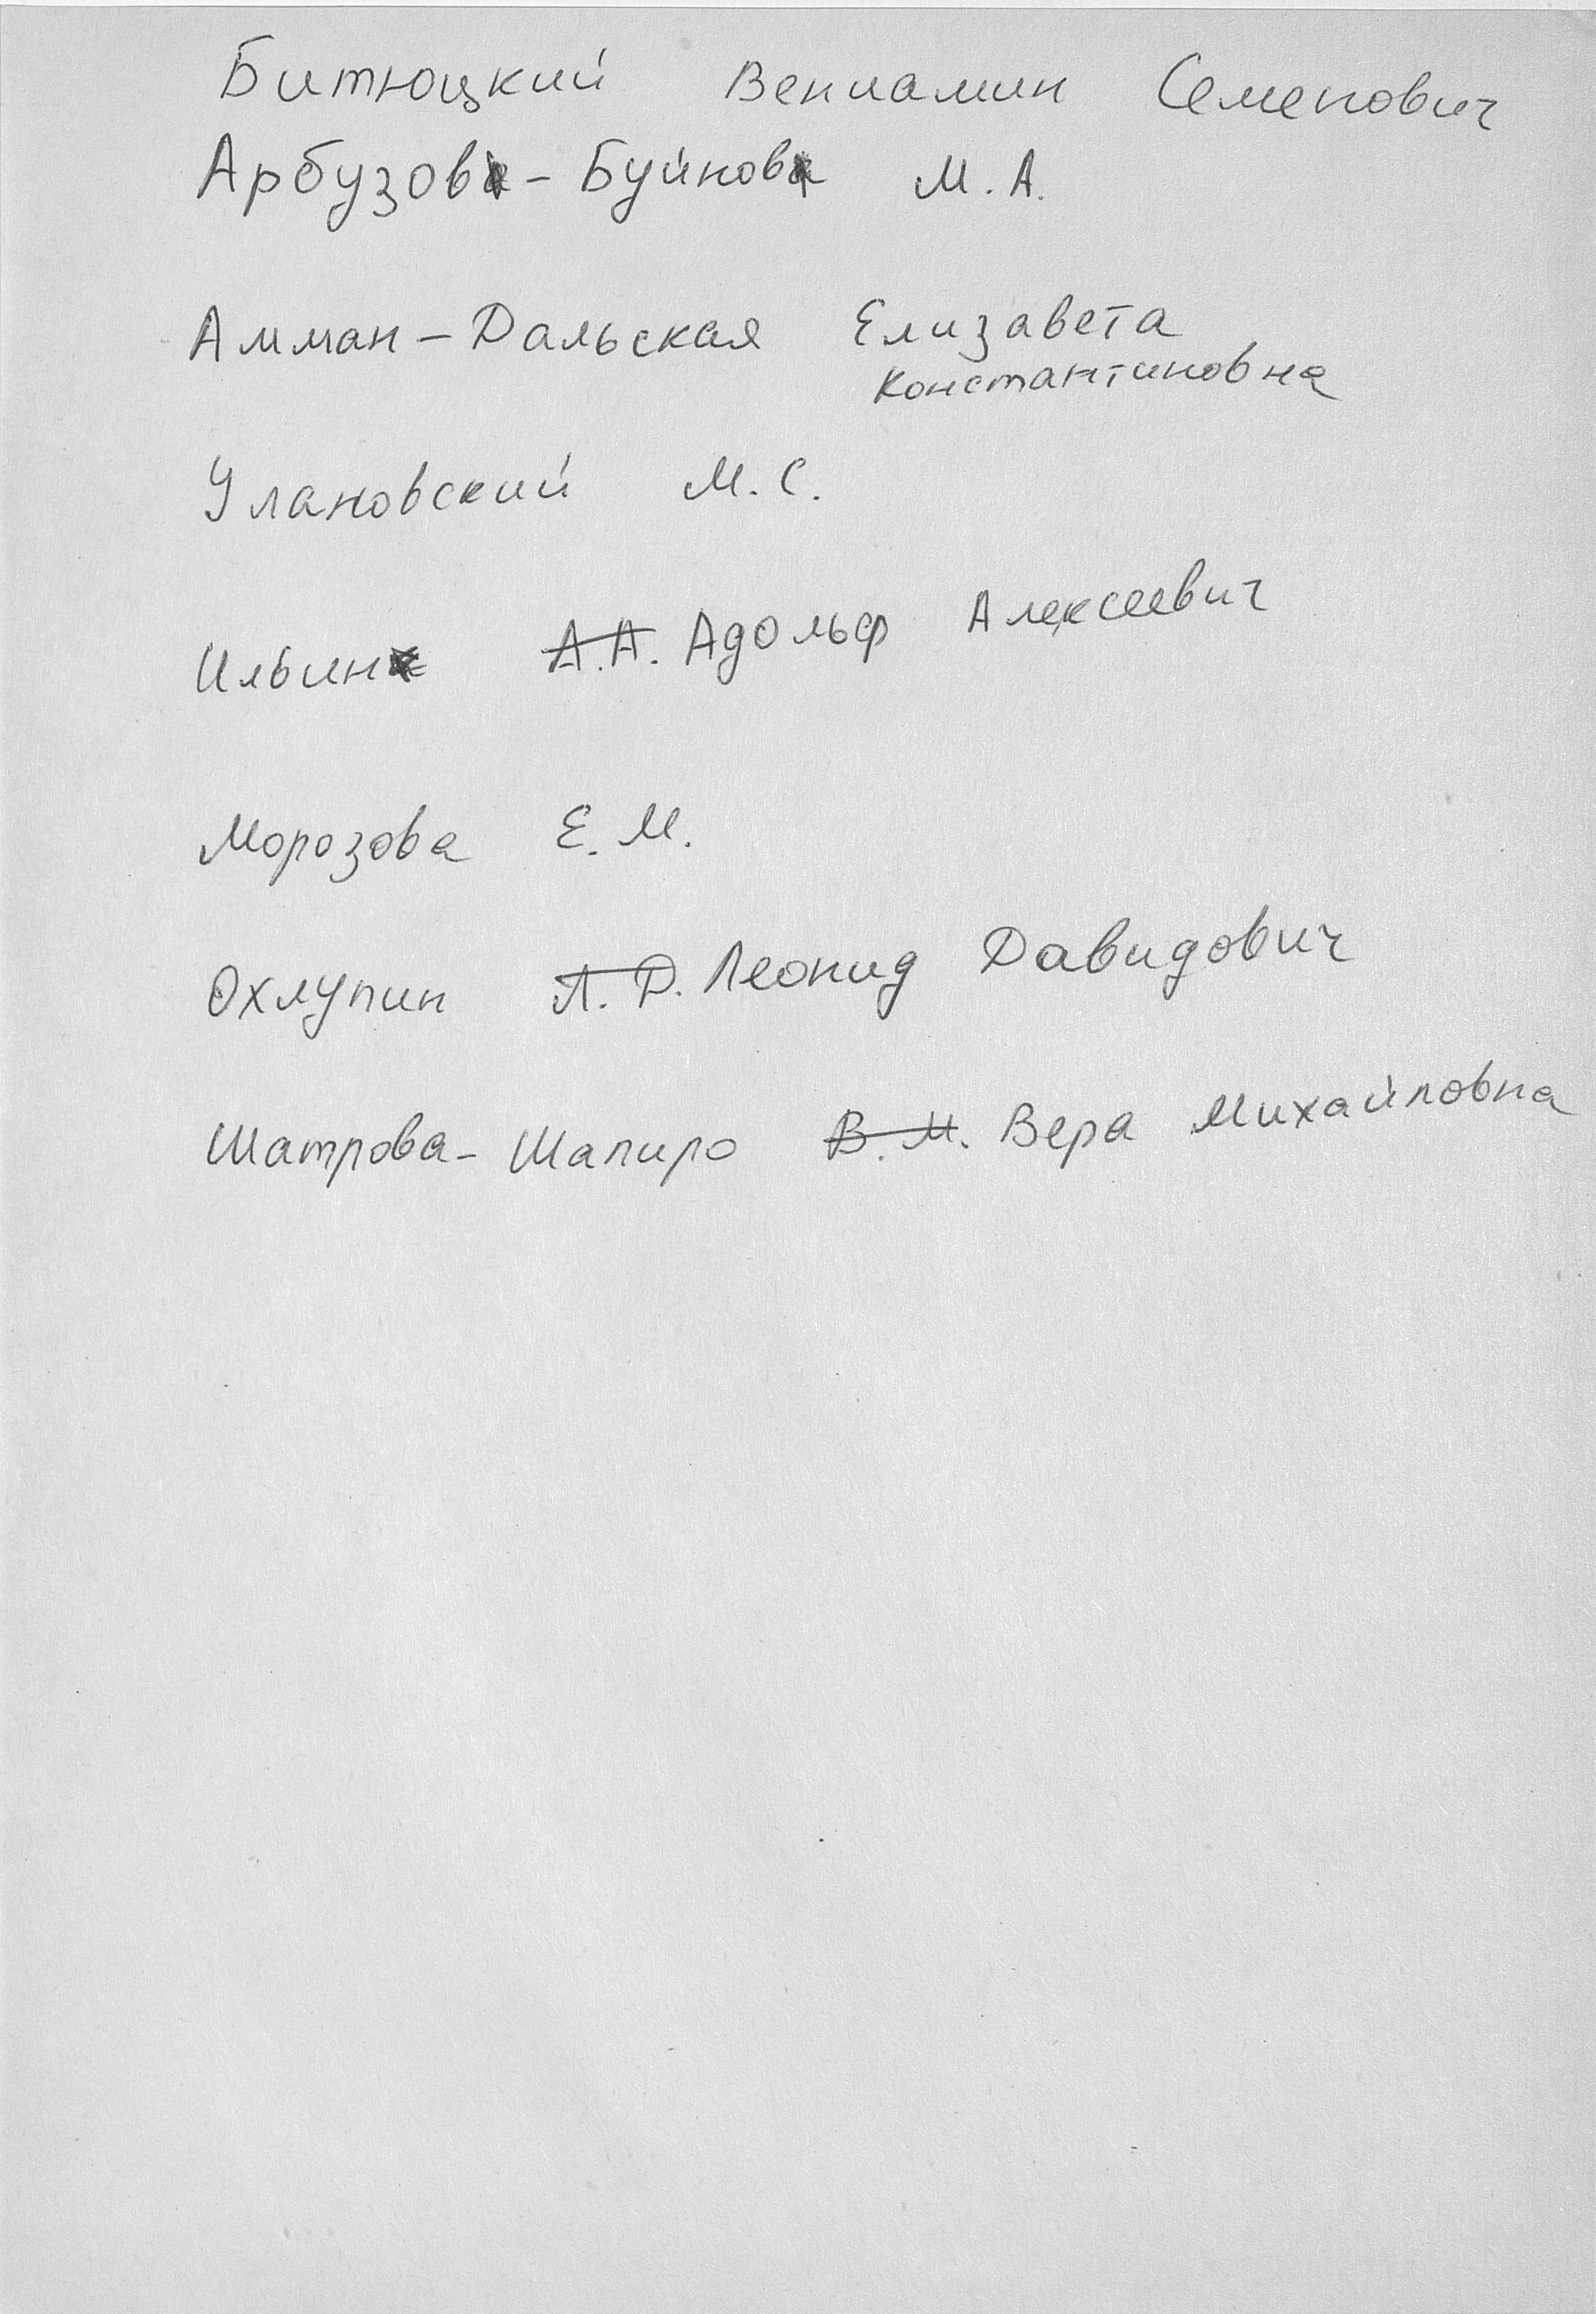 Битюцкий Вениамин Семенович
Арбузов - Буйнов М. А.
Амман - Дальская Елизавета
Константиновна
Улановский М. С.
Ильин А. А. Адольф Алексеевич
Морозова Е. М.
Охлупин Л. Д. Леонид Давидович
Шатрова - Шапиро В. М. Вера Михайловна